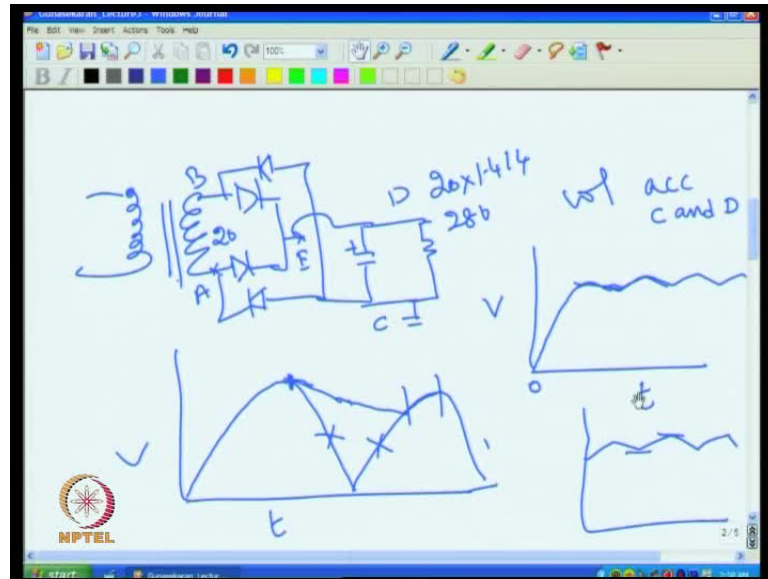 Gunasekaran_Lecture3 - Windows Journal
File Edit View Insert Actions Tools Help
100%
B I
B
D 20x1.414
280
vol acc
C and D
20
E
A
+
C
V
0
t
V
t
NPTEL
2/5
start
Gunasekaran_Lectur...